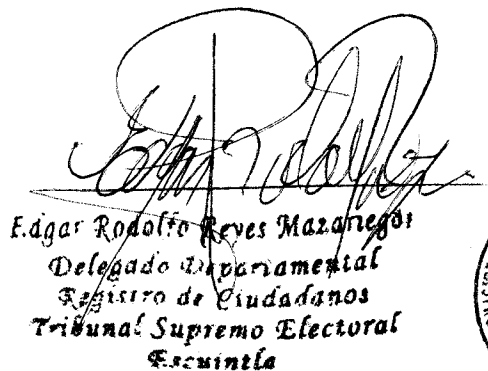 Edgar Rodolfo Reyes Mazariegos
Delegado Departamental
Registro de Ciudadanos
Tribunal Supremo Electoral
Escuintla